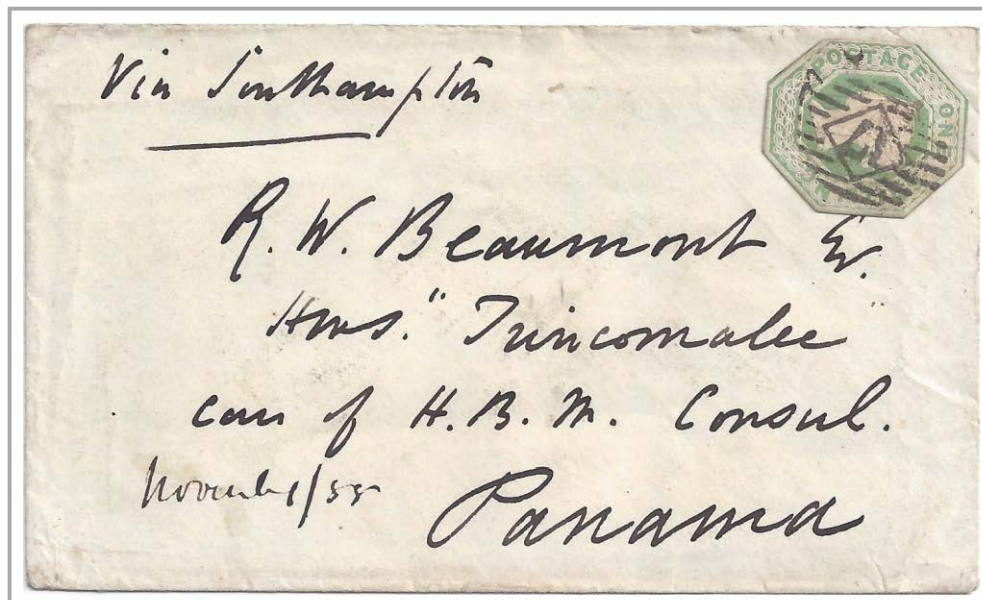 Via Southampton
POSTAGE
ONE
R. W. Beaumont Er.
Hms. "Trincomalee"
care of H. B. M. Consul.
November/55
Panama